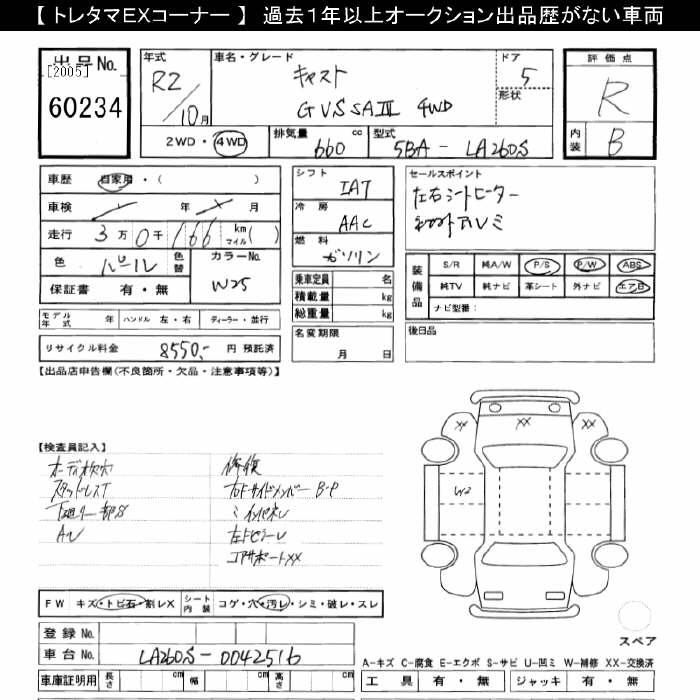 【 トレタマEXコーナー 】 過去1年以上オークション出品歴がない車両
出品No.
[2005]
60234
年式
R2/10月
車名・グレード
キャスト
G VS SAⅢ 4WD
ドア
5
形状
評価点
R
内装
B
2WD・4WD
排気量
660 cc
型式
5BA-LA260S
車歴 自家用・( )
車検 年 月
走行 3万0千166 km マイル( )
色 パール 色替
カラーNo.
W25
保証書 有・無
モデル年式 年 ハンドル 左・右 ディーラー・並行
リサイクル料金 8550,- 円 預託済
シフト
IAT
冷房
AAC
燃料
ガソリン
乗車定員 名
積載量 kg
総重量 kg
名変期限
月 日
セールスポイント
左右シートヒーター
アルミ
装備品
S/R 純A/W P/S P/W ABS
純TV 純ナビ 革シート 外ナビ エアB
ナビ型番:
後日品
【出品店申告欄(不良箇所・欠品・注意事項等)】
【検査員記入】
スタッドレスT
下廻り一部S
修復
右Fサイドメンバー B・P
〃 インパネレ
左Fピラーレ
コアサポートXX
XX
XX
XX
W2
FW キズ・トビ石・割レX シート内装 コゲ・穴・汚レ・シミ・破レ・スレ
登録No.
車台No. LA260S-0042516
車庫証明用 長さ cm 幅 cm 高さ cm
スペア
A-キズ C-腐食 E-エクボ S-サビ U-凹ミ W-補修 XX-交換済
工具 有・無 ジャッキ 有・無